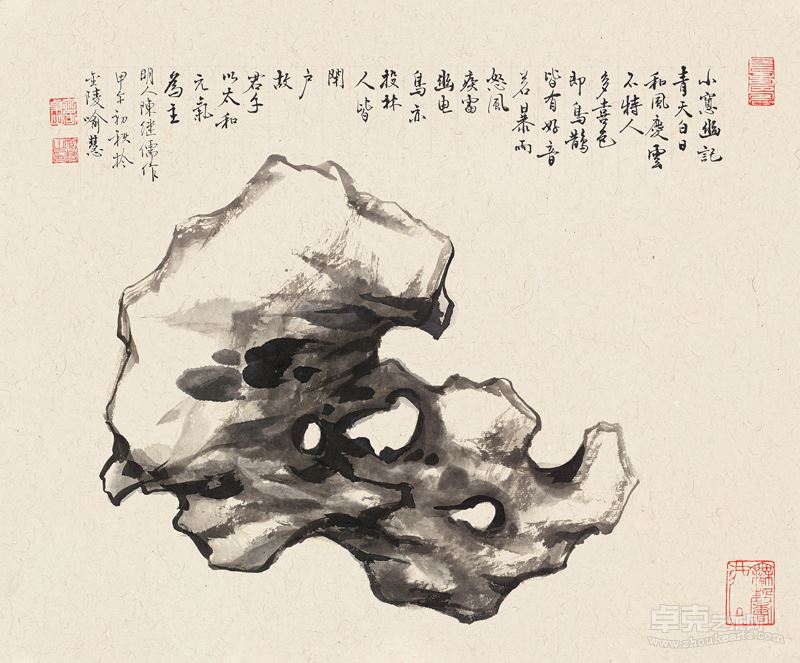 小窓幽記
青天白日
和風慶雲
不特人
多喜色
即鳥鵲
皆有好音
若暴雨
怒風
疾雷
幽电
鳥亦
投林
人皆
閉
户
故
君子
以太和
元氣
為主
明人陳继儒作
甲午初秋於
金陵喻慧
卓克艺术网
www.zhoukearts.com